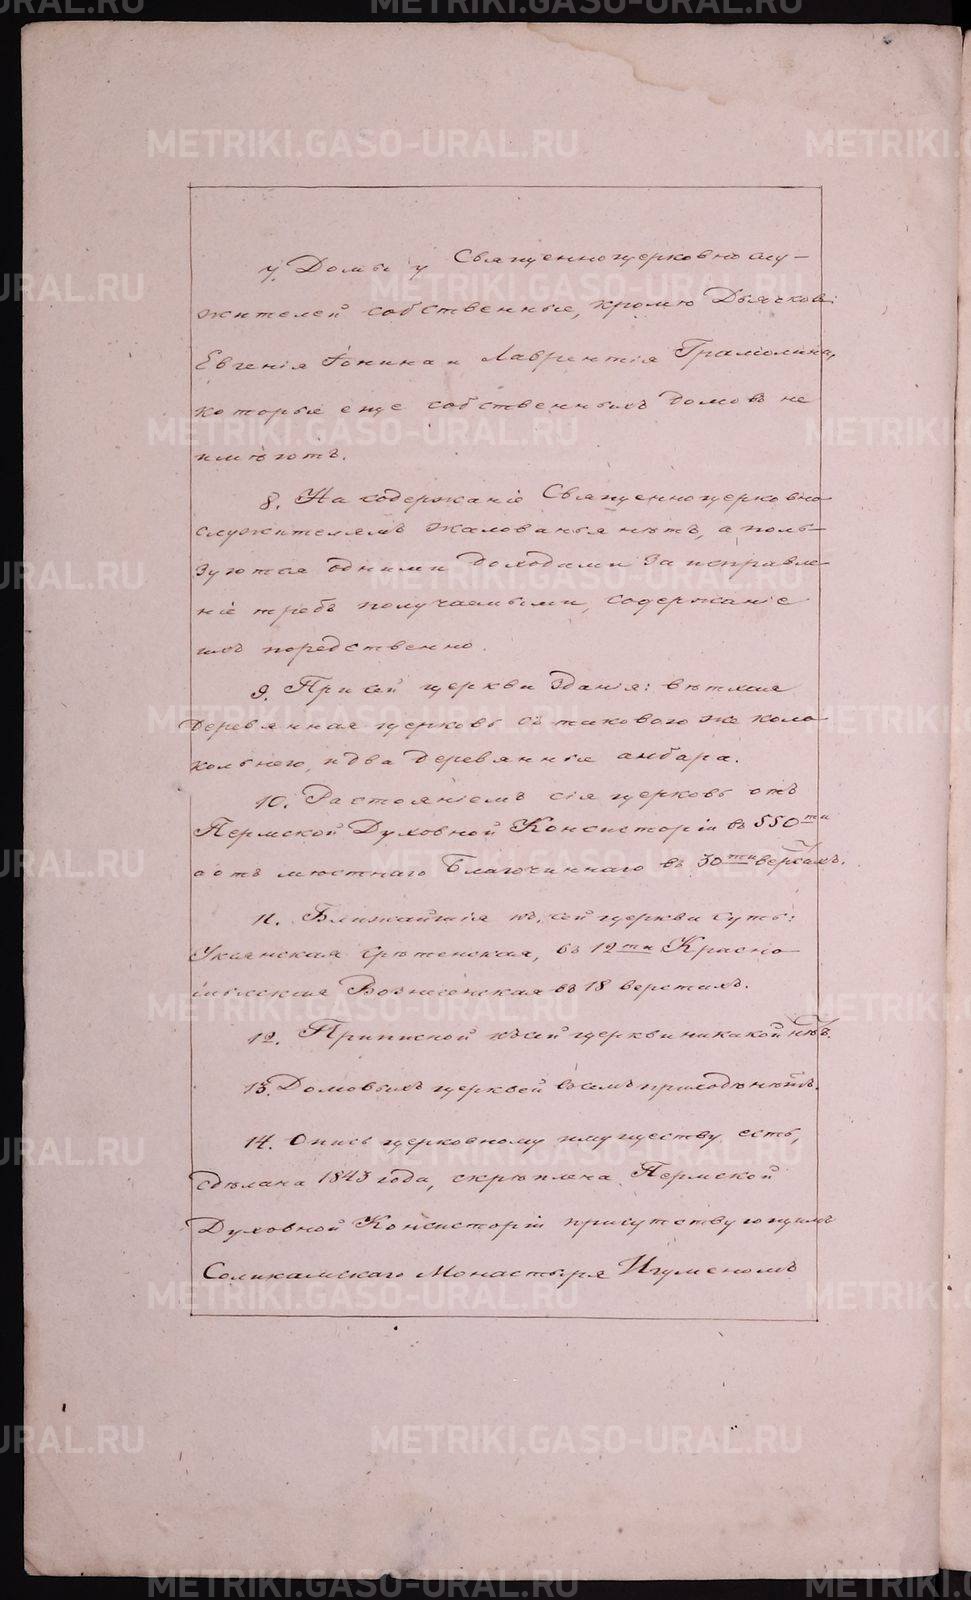 7. Домы у Священноцерковнослу-
жителей собственные, кромѣ Дьячковъ
Евгенія Іонина и Лаврентія
которые еще собственныхъ домовъ не
имѣютъ.
8. На содержаніе Священноцерковно
служителямъ жалованья нѣтъ, а поль-
зуются одними доходами за исправле-
ніе требъ получаемыми, содержаніе
ихъ посредственно.
9. При сей церкви зданія: ветхая
деревянная церковь съ таковою же коло
кольнею, и два деревянные амбара.
10. Разстояніемъ сія церковь отъ
Пермской Духовной Консисторіи въ 550ти
а отъ мѣстнаго Благочиннаго въ 30ти верстахъ.
11. Ближайшія къ сей церкви суть:
Уксянская Срѣтенская, въ 12ти Красно
Вознесенская въ 18 верстахъ.
12. Приписной къ сей церкви никакой нѣтъ.
13. Домовыхъ церквей въ семъ приходѣ нѣтъ.
14. Опись церковному имуществу есть,
сдѣлана 1843 года, скрѣплена Пермской
Духовной Консисторіи присутствующимъ
Соликамскаго Монастыря Игуменомъ
METRIKI.GASO-URAL.RU